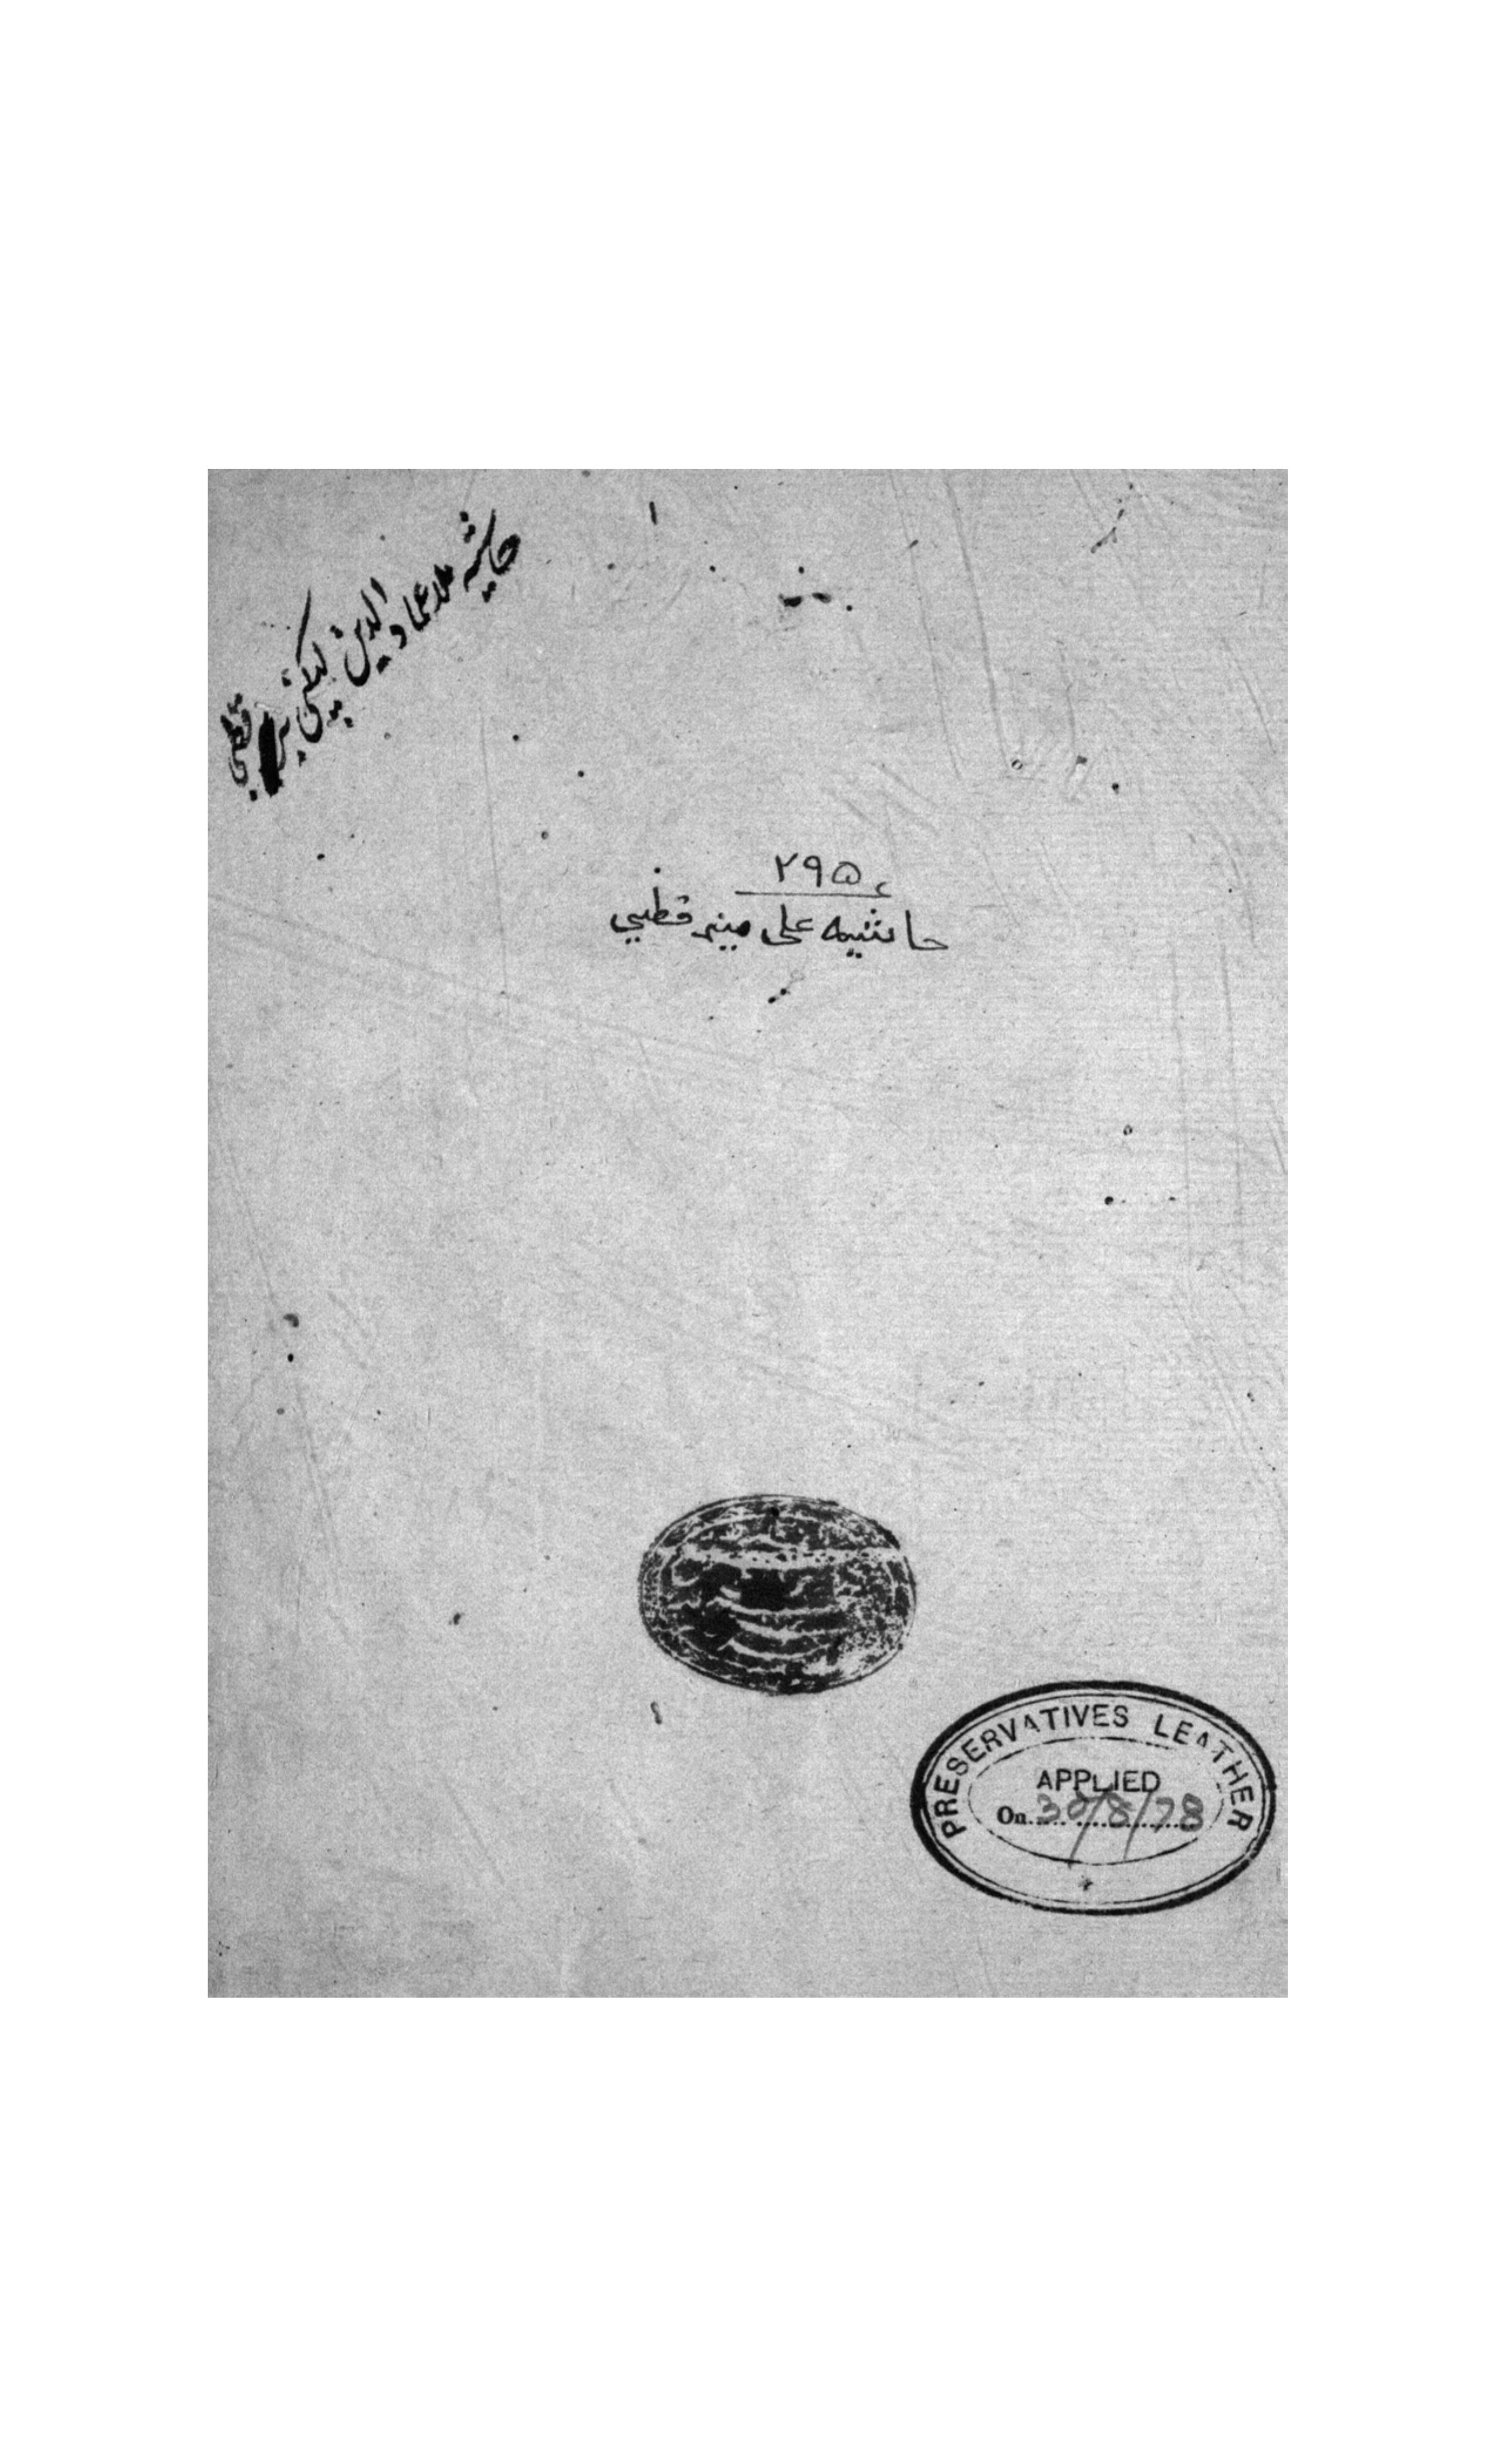 حاشيه ملا عماد الدين لبكنى بر قطبى
٢٩٥
حاشيه على مير قطبي
PRESERVATIVES LEATHER
APPLIED
On 30/8/78